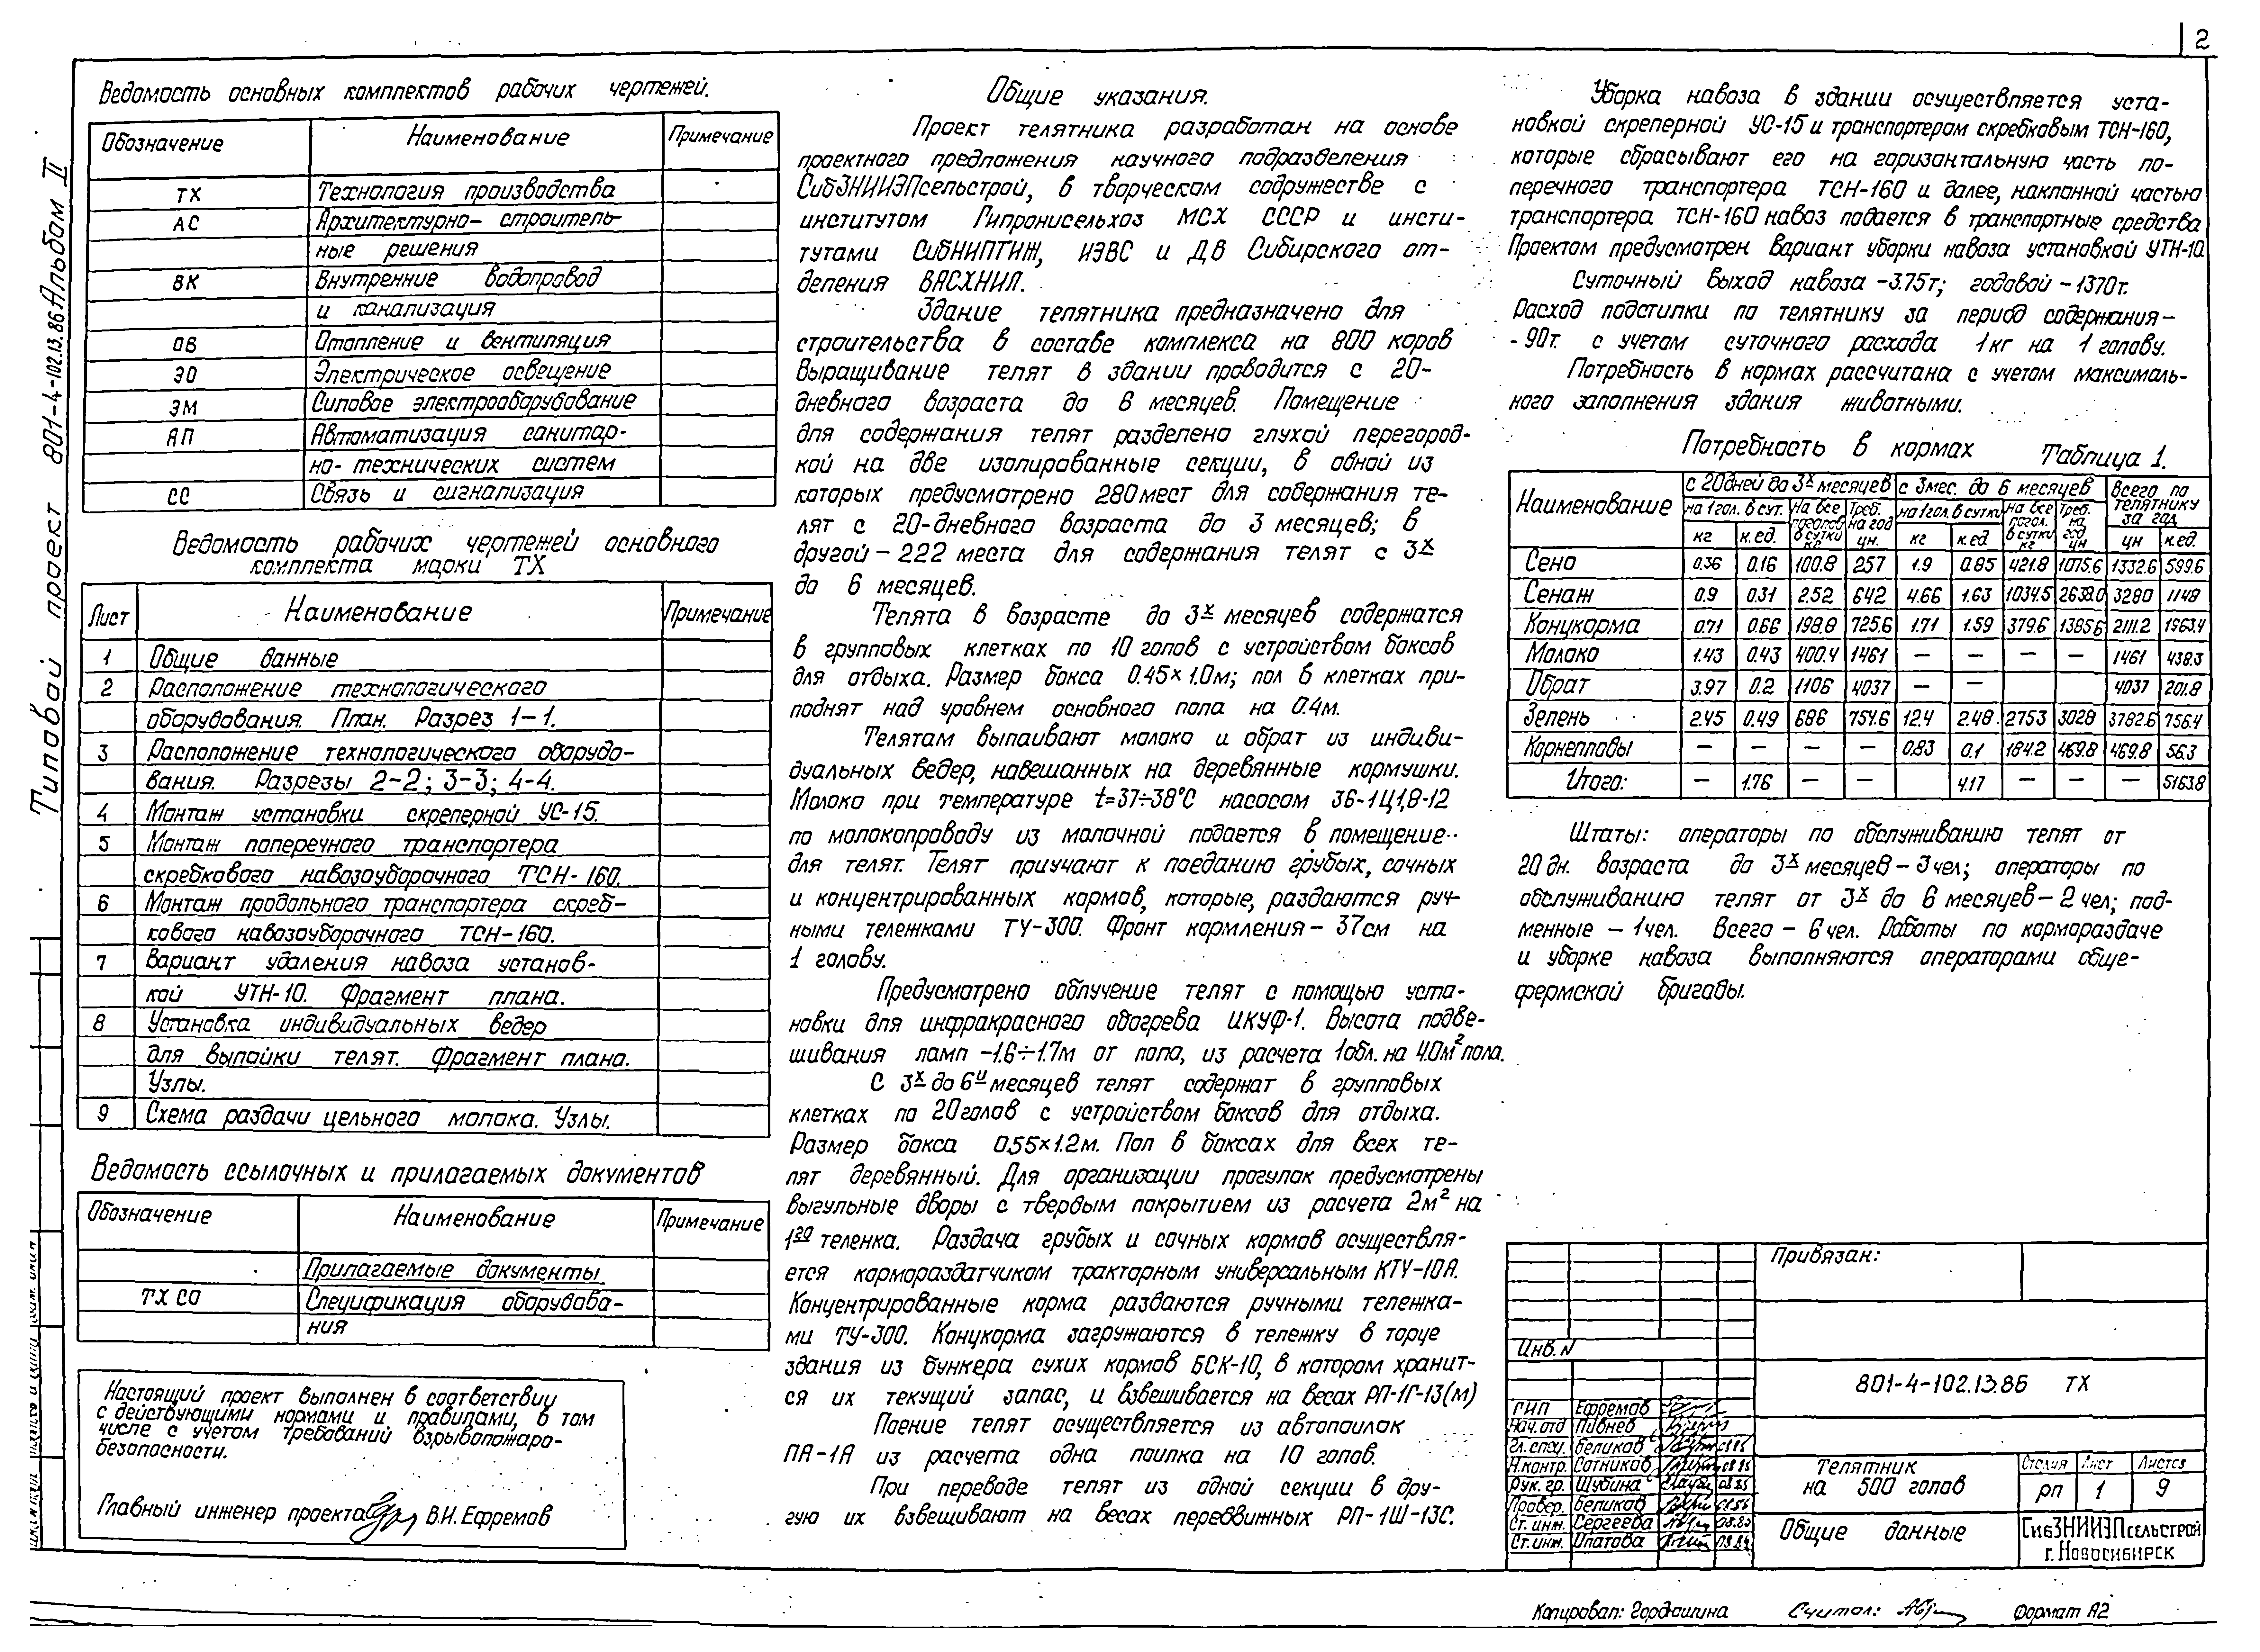 2
Типовой проект 801-4-102.13.86 Альбом II
Ведомость основных комплектов рабочих чертежей.
Обозначение Наименование Примечание
ТХ Технология производства
АС Архитектурно-строитель-
ные решения
ВК Внутренние водопровод
и канализация
ОВ Отопление и вентиляция
ЭО Электрическое освещение
ЭМ Силовое электрооборудование
АП Автоматизация санитар-
но-технических систем
СС Связь и сигнализация
Ведомость рабочих чертежей основного
комплекта марки ТХ
Лист Наименование Примечание
1 Общие данные
2 Расположение технологического
оборудования. План. Разрез 1-1.
3 Расположение технологического оборудо-
вания. Разрезы 2-2; 3-3; 4-4.
4 Монтаж установки скреперной УС-15.
5 Монтаж поперечного транспортера
скребкового навозоуборочного ТСН-160.
6 Монтаж продольного транспортера скреб-
кового навозоуборочного ТСН-160.
7 Вариант удаления навоза установ-
кой УТН-10. Фрагмент плана.
8 Установка индивидуальных ведер
для выпойки телят. Фрагмент плана.
Узлы.
9 Схема раздачи цельного молока. Узлы.
Ведомость ссылочных и прилагаемых документов
Обозначение Наименование Примечание
Прилагаемые документы
ТХ СО Спецификация оборудова-
ния
Настоящий проект выполнен в соответствии
с действующими нормами и правилами, в том
числе с учетом требований взрывопожаро-
безопасности.
Главный инженер проекта В.И. Ефремов
Общие указания.
Проект телятника разработан на основе
проектного предложения научного подразделения
СибЗНИИЭПсельстрой, в творческом содружестве с
институтом Гипронисельхоз МСХ СССР и инсти-
тутами СибНИПТИЖ, ИЭВС и ДВ Сибирского от-
деления ВАСХНИЛ.
Здание телятника предназначено для
строительства в составе комплекса на 800 коров
Выращивание телят в здании проводится с 20-
дневного возраста до 6 месяцев. Помещение
для содержания телят разделено глухой перегород-
кой на две изолированные секции, в одной из
которых предусмотрено 280 мест для содержания те-
лят с 20-дневного возраста до 3 месяцев; в
другой - 222 места для содержания телят с 3х
до 6 месяцев.
Телята в возрасте до 3х месяцев содержатся
в групповых клетках по 10 голов с устройством боксов
для отдыха. Размер бокса 0.45×1.0м; пол в клетках при-
поднят над уровнем основного пола на 0.4м.
Телятам выпаивают молоко и обрат из индиви-
дуальных ведер, навешанных на деревянные кормушки.
Молоко при температуре t=37÷38°С насосом 36-1Ц1,8-12
по молокопроводу из молочной подается в помещение
для телят. Телят приучают к поеданию грубых, сочных
и концентрированных кормов, которые, раздаются руч-
ными тележками ТУ-300. Фронт кормления - 37см на
1 голову.
Предусмотрено облучение телят с помощью уста-
новки для инфракрасного обогрева ИКУФ-1. Высота подве-
шивания ламп -1.6÷1.7м от пола, из расчета 1обл. на 4.0м² пола.
С 3х до 6и месяцев телят содержат в групповых
клетках по 20 голов с устройством боксов для отдыха.
Размер бокса 0.55×1.2м. Пол в боксах для всех те-
лят деревянный. Для организации прогулок предусмотрены
выгульные дворы с твердым покрытием из расчета 2м² на
1го теленка. Раздача грубых и сочных кормов осуществля-
ется кормораздатчиком тракторным универсальным КТУ-10А.
Концентрированные корма раздаются ручными тележка-
ми ТУ-300. Конц­корма загружаются в тележку в торце
здания из бункера сухих кормов БСК-10, в котором хранит-
ся их текущий запас, и взвешивается на весах РП-1Г-13(м)
Поение телят осуществляется из автопоилок
ПА-1А из расчета одна поилка на 10 голов.
При переводе телят из одной секции в дру-
гую их взвешивают на весах передвижных РП-1Ш-13С.
Уборка навоза в здании осуществляется уста-
новкой скреперной УС-15 и транспортером скребковым ТСН-160,
которые сбрасывают его на горизонтальную часть по-
перечного транспортера ТСН-160 и далее, наклонной частью
транспортера ТСН-160 навоз подается в транспортные средства
Проектом предусмотрен вариант уборки навоза установкой УТН-10.
Суточный выход навоза - 3.75т; годовой - 1370т.
Расход подстилки по телятнику за период содержания -
- 90т. с учетом суточного расхода 1кг на 1 голову.
Потребность в кормах рассчитана с учетом максималь-
ного заполнения здания животными.
Потребность в кормах Таблица 1.
Наименование с 20дней до 3х месяцев с 3мес. до 6 месяцев Всего по телятнику за год
на 1гол. в сут. На все поголов. в сутки кг Треб. на год цн. на 1гол. в сутки На все погол. в сутки кг Треб. на год цн
кг к.ед. кг к.ед цн к.ед.
Сено 0.36 0.16 100.8 257 1.9 0.85 421.8 1075.6 1332.6 599.6
Сенаж 0.9 0.31 252 642 4.66 1.63 1034.5 2638.0 3280 1148
Концкорма 0.71 0.66 198.8 725.6 1.71 1.59 379.6 1385.6 2111.2 1963.4
Молоко 1.43 0.43 400.4 1461 — — — — 1461 438.3
Обрат 3.97 0.2 1106 4037 — — 4037 201.8
Зелень 2.45 0.49 686 754.6 12.4 2.48 2753 3028 3782.6 756.4
Корнеплоды — — — — 0.83 0.1 184.2 469.8 469.8 56.3
Итого: — 1.76 — — 4.17 — — — 5163.8
Штаты: операторы по обслуживанию телят от
20 дн. возраста до 3х месяцев - 3 чел; операторы по
обслуживанию телят от 3х до 6 месяцев - 2 чел; под-
менные - 1чел. Всего - 6 чел. Работы по кормораздаче
и уборке навоза выполняются операторами обще-
фермской бригады.
Привязан:
Инв. N
801-4-102.13.86 ТХ
ГИП Ефремов
Нач. отд Пивнев
Гл. спец. Беликов
Н.контр. Сотников
Рук. гр. Шубина
Провер. Беликов
Ст. инж. Сергеева
Ст. инж. Ипатова
Телятник
на 500 голов
Стадия Лист Листов
рп 1 9
Общие данные
СибЗНИИЭПсельстрой
г. Новосибирск
Копировал: Гордашина Считал: Формат А2